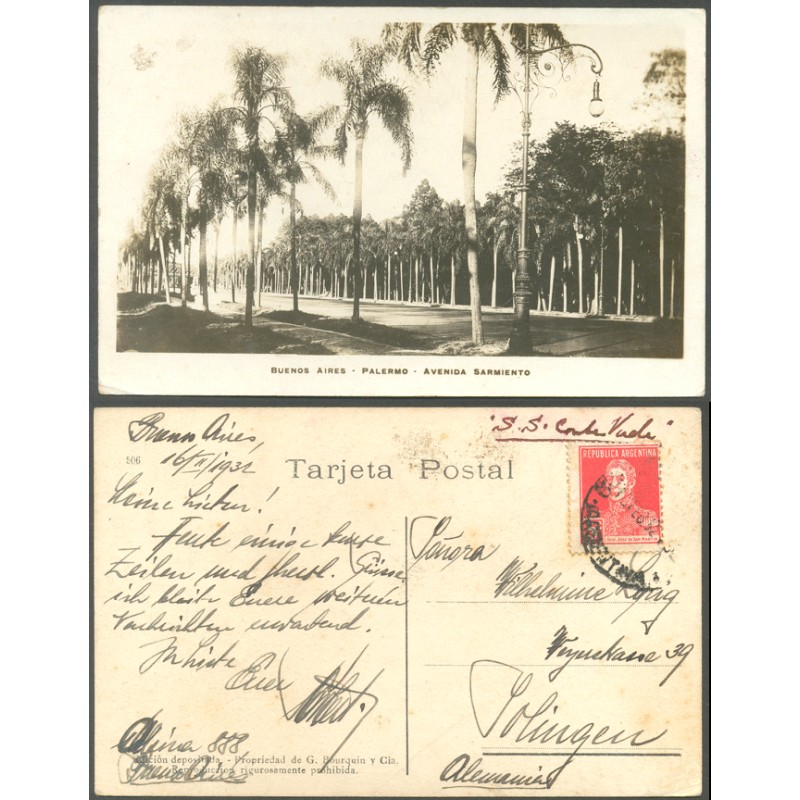 BUENOS AIRES - PALERMO - AVENIDA SARMIENTO
"S.S. Conte Verde"
Buenos Aires,
16/II/1932
806
Tarjeta Postal
REPUBLICA ARGENTINA
Meine Lieben!
Heute einige kurze
Zeilen und herzl. Grüsse
ich bleibe Eurer weiteren
Nachrichten erwartend.
In Liebe
Euer
Señora
Wilhelmine
Weyerstrasse 39
Solingen
Alemania
Alsina 888
Buenos Aires
Edición depositada. - Propriedad de G. Bourquin y Cia.
Reproduccion rigurosamente prohibida.